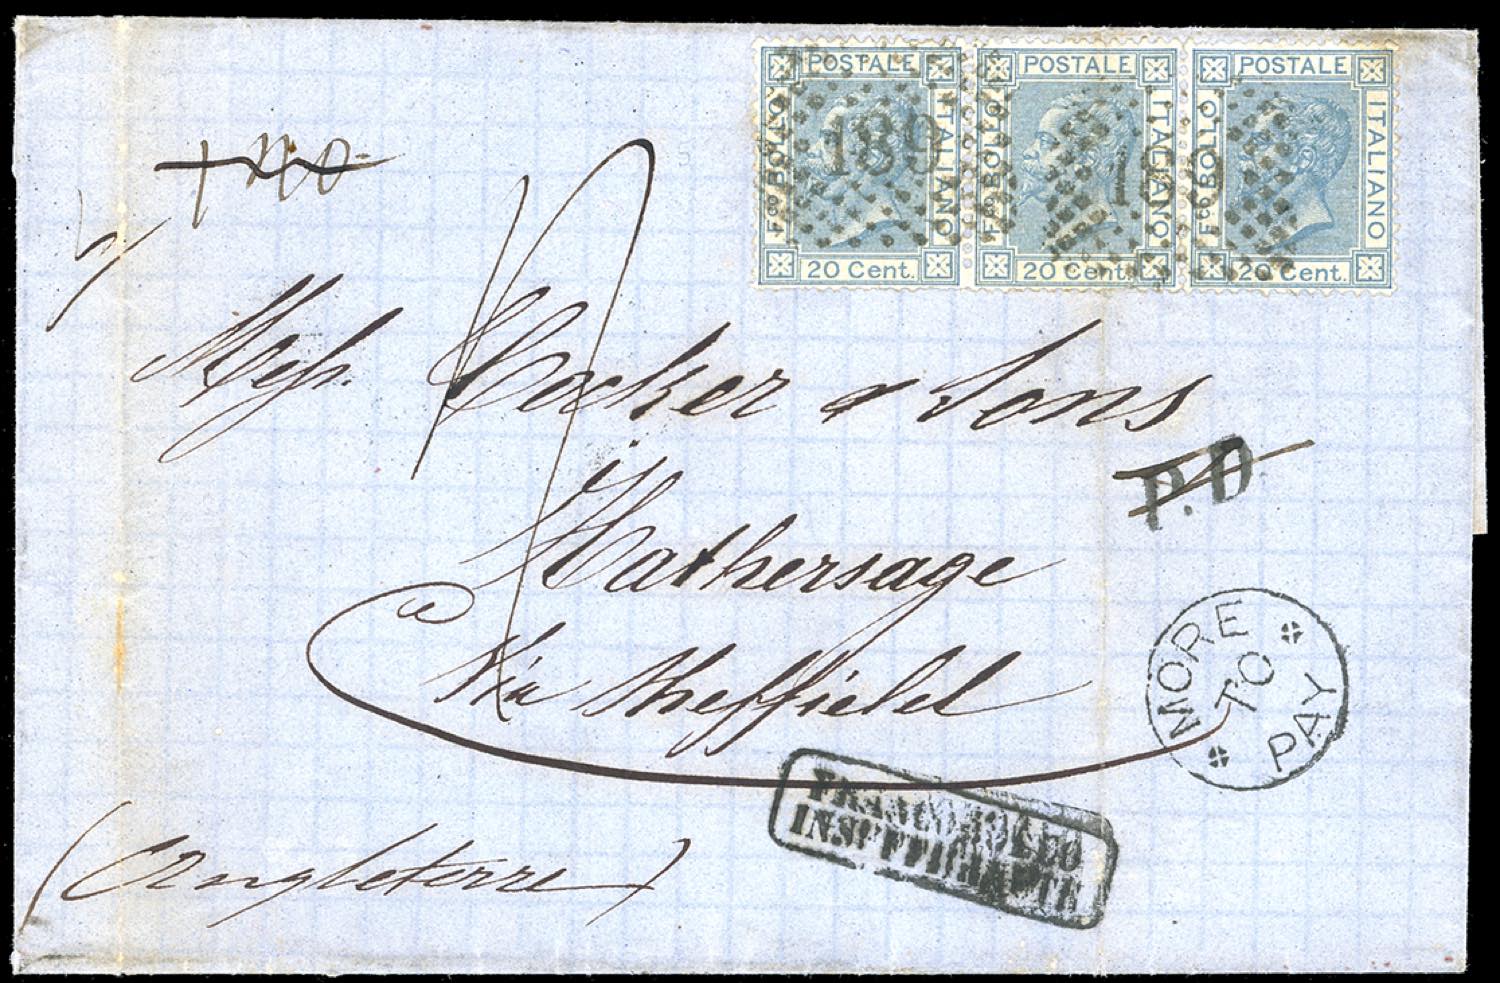 POSTALE
ITALIANO
Fco BOLLO
20 Cent.
POSTALE
ITALIANO
Fco BOLLO
20 Cent.
POSTALE
ITALIANO
Fco BOLLO
20 Cent.
189
Messrs. Cocker & Sons
P.D.
Hathersage
Via Sheffield
MORE
TO
PAY
FRANCOBOLLO
INSUFFICIENTE
(Angleterre)